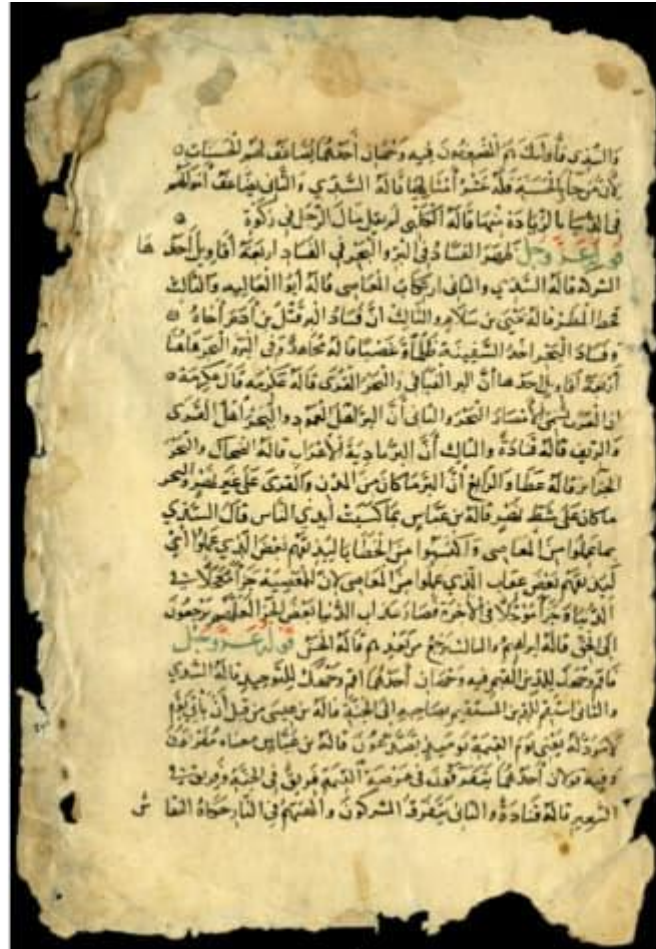 والسدى فأولئك هم المضعفون فيه وجهان أحدهما يضاعف لهم الحسنات
لأن من جا بالحسنة فله عشر أمثالها قاله السدي والثاني يضاعف أموالهم
في الدنيا بالزيادة منها قاله الكلبي لم يقل مال الرجل في زكوة
قوله عز وجل ظهر الفساد في البر والبحر في الفساد أربعة أقاويل أحدها
الشرك قاله السدي والثاني ارتكاب المعاصى قاله أبو العاليه والثالث
قحط المطر قاله يحيى بن سلام والثالث أن فساد البر قتل بن أدم أخاه
وفساد البحر اخذ السفينة ظلما وغصبا قاله مجاهد وفي البر والبحر هاهنا
أربعة أقاويل احدها أن البر الفيافي والبحر القرى قاله عكرمه قال عكرمة
ان العرب تسمى الأمصار البحر والثاني أن البر أهل العمود والبحر أهل القرى
والريف قاله قتادة والثالث أن البر بادية الأعراب قاله الضحاك والبحر
الجزائر قاله عطا والرابع أن البر ما كان من المدن والقرى على غير نهر والبحر
ما كان على شط نهر قاله بن عباس بما كسبت أيدي الناس قال السدي
بما عملوا من المعاصى واكتسبوا من الخطايا ليذيقهم بعض الذي عملوا أي
ليذيقهم بعض عقاب الذي عملوا من المعاصى لأن للمعصية جزأ معجلا في
الدنيا وجزأ مؤجلا في الأخرة فصار عذاب الدنيا بعض الجزا لعلهم يرجعون
الى الحق قاله ابراهيم والثالث يرجع من بعدهم قاله الحسن قوله عز وجل
فاقم وجهك للدين القيم فيه وجهان أحدهما اقم وجهك للتوحيد قاله السدي
والثاني استقم للدين المستقيم بصاحبه الى الجنة قاله بن عيسى من قبل أن يأتي يوم
لا مرد له يعني يوم القيمة يوميذ يصدعون قاله بن عباس معناه يتفرقون
وفيه قولان أحدهما يتفرقون في عرصة القيمة فريق في الجنة وفريق في
السعير قاله قتادة والثاني يتفرق المشركون والهتهم في النار حكاه النقاش